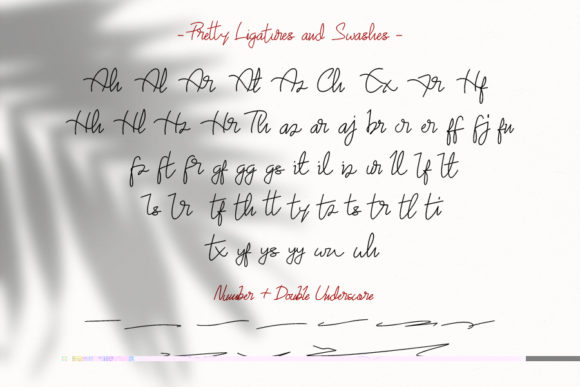 - Pretty Ligatures and Swashes -
Ah Al Ar At Az Ch Ex Fr Hf
Hh Hl Hz Hr Th az ar aj br cr er ff fj fu
fz ft fr gf gg gs it il iz ur ll lf lt
ls lr tf th tt ty tz ts tr tl ti
tx yf ys yy wn wh
Number + Double Underscore